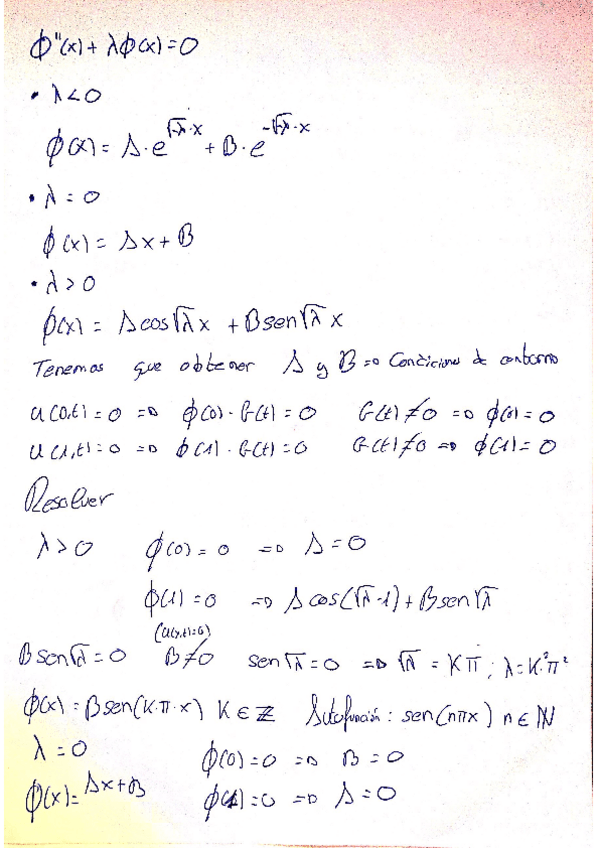 ϕ''(x) + λϕ(x) = 0
• λ < 0
ϕ(x) = A·e^(√-λ·x) + B·e^(-√-λ·x)
• λ = 0
ϕ(x) = Ax + B
• λ > 0
ϕ(x) = A cos√λ x + B sen√λ x
Tenemos que obtener A y B => Condiciones de contorno
u(0,t) = 0 => ϕ(0)·G(t) = 0 G(t) ≠ 0 => ϕ(0) = 0
u(1,t) = 0 => ϕ(1)·G(t) = 0 G(t) ≠ 0 => ϕ(1) = 0
Resolver
λ > 0 ϕ(0) = 0 => A = 0
ϕ(1) = 0 => A cos(√λ·1) + B sen√λ
(u(x,t)=0)
B sen√λ = 0 B ≠ 0 sen√λ = 0 => √λ = Kπ ; λ = K²π²
ϕ(x) = B sen(K·π·x) K ∈ ℤ Autofunción : sen(nπx) n ∈ ℕ
λ = 0 ϕ(0) = 0 => B = 0
ϕ(x) = Ax + B ϕ(1) = 0 => A = 0